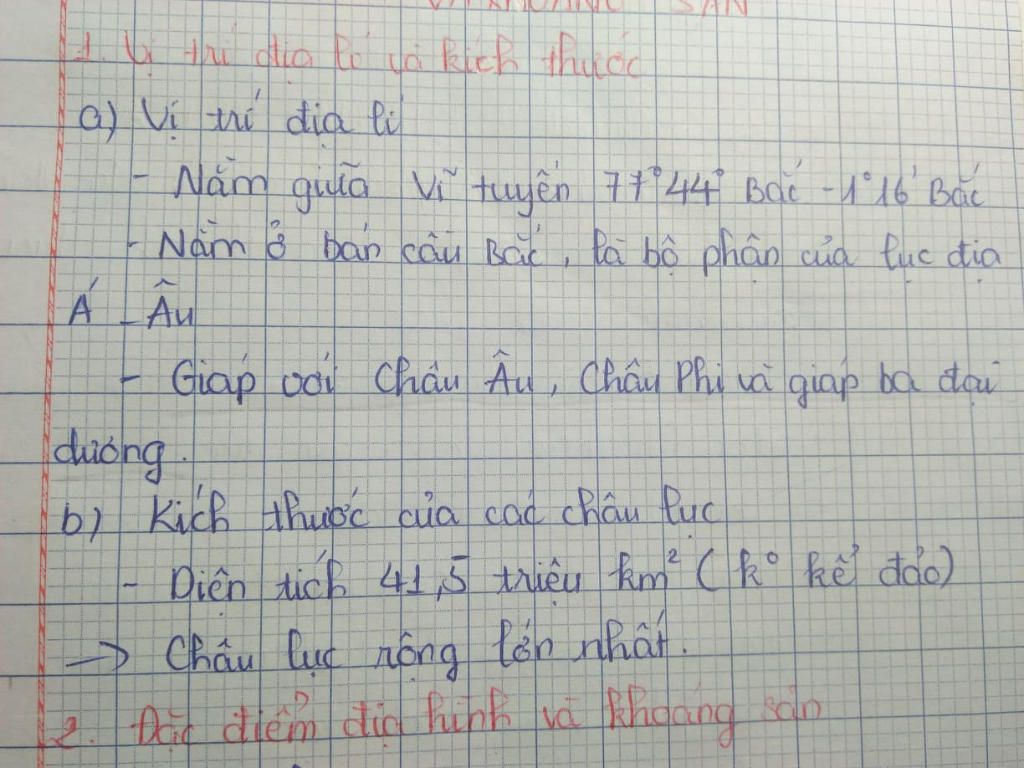 VÀ KHOÁNG SẢN
1. Vị trí địa lí và kích thước
a) Vị trí địa lí
- Nằm giữa vĩ tuyến 77°44° Bắc - 1°16' Bắc
- Nằm ở bán cầu Bắc, là bộ phận của lục địa
Á - Âu
- Giáp với Châu Âu, Châu Phi và giáp ba đại
dương.
b) Kích thước của các châu lục
- Diện tích 41,5 triệu km² ( k° kể đảo)
→ Châu lục rộng lớn nhất.
2. Đặc điểm địa hình và khoáng sản